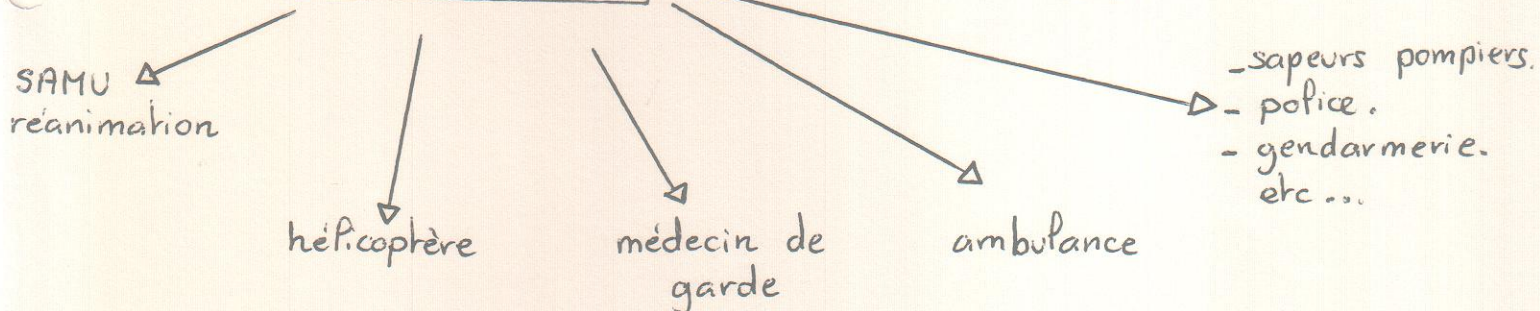 SAMU
réanimation
hélicoptère
médecin de
garde
ambulance
- sapeurs pompiers.
- police.
- gendarmerie.
etc...